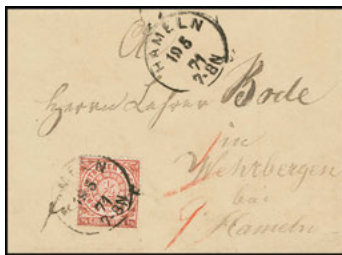 HAMELN
19 5
71
7-8N
A
Herrn Lehrer Bode
in
Wehrbergen
bei
Hameln
HAMELN
19 5
71
7-8N